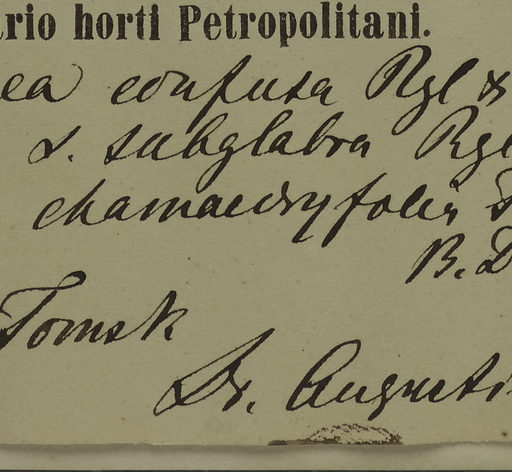 rio horti Petropolitani.
ea confusa Rgl &
α. subglabra Rgl
chamaedryfolia
B. D
Tomsk
Dr. Augusti